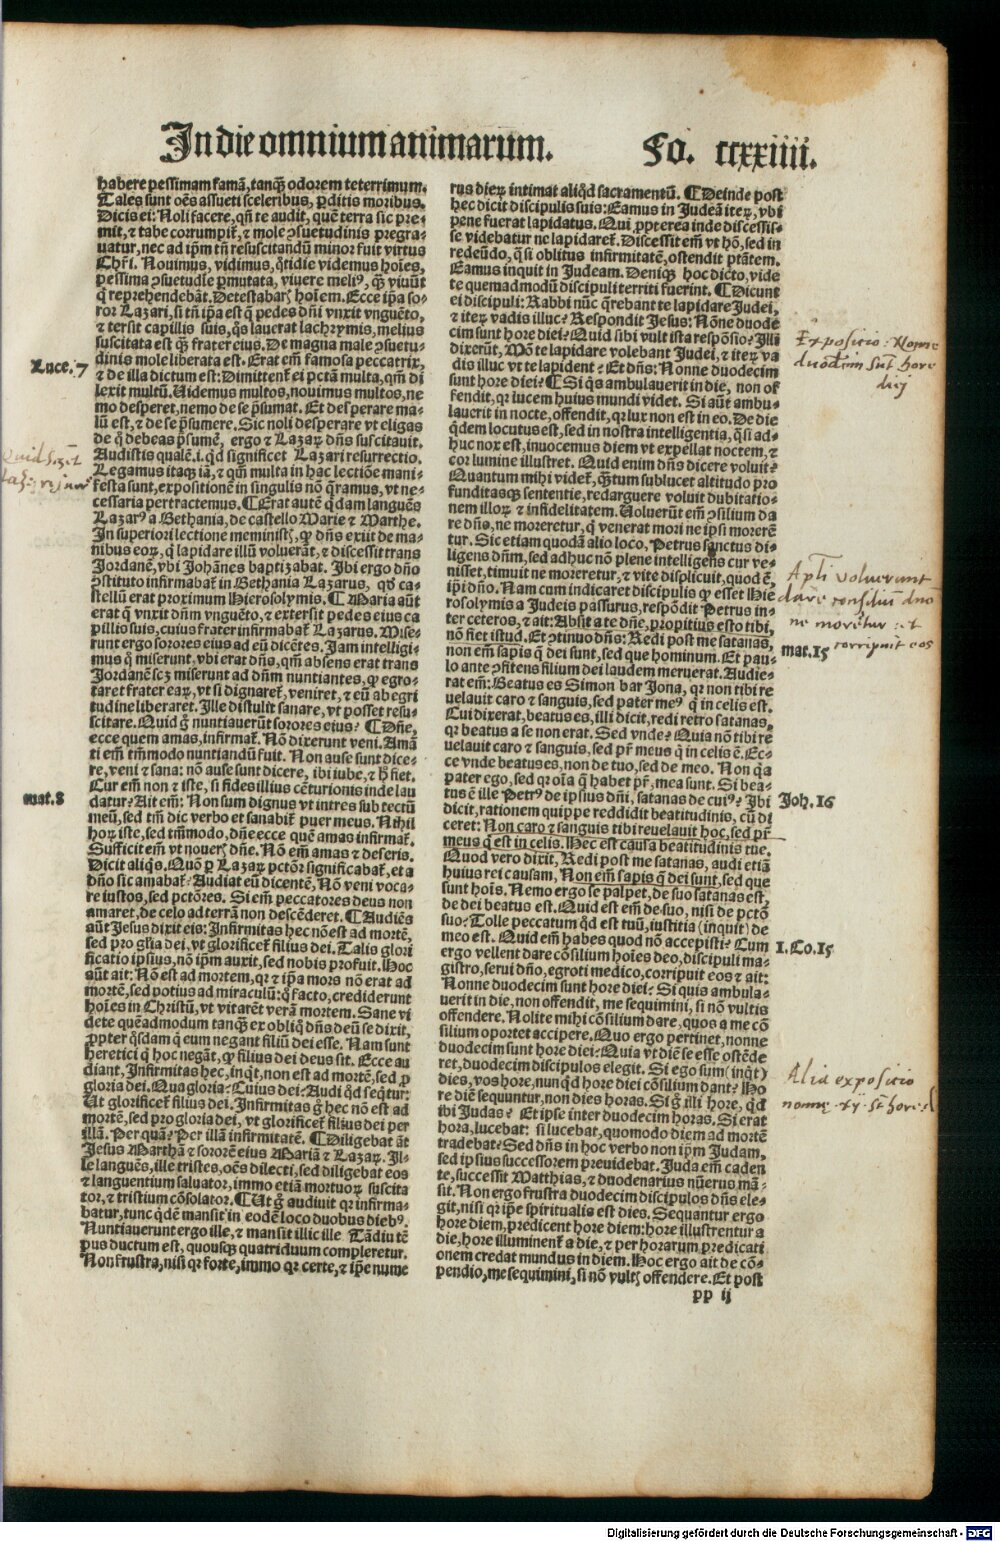 In die omnium animarum. Fo. ccxxiiii.
habere pessimam famã, tanq̃ odorem teterrimum.
Tales sunt oẽs assueti sceleribus, ꝑditis moribus.
Dicis ei: Noli facere, qñ te audit, quẽ terra sic pre-
mit, ⁊ tabe corrumpit̃, ⁊ mole ↄsuetudinis pregra-
uatur, nec ad ip̃m tñ resuscitandũ minor fuit virtus
Chr̃i. Nouimus, vidimus, q̃tidie videmus hoĩes,
pessima ↄsuetudĩe ꝑmutata, viuere meliꝰ, q̃ viuũt
q̃ reprehendebãt. Detestabarꝭ hoĩem. Ecce ip̃a so-
ror Lazari, si tñ ip̃a est q̃ pedes dñi vnxit vnguẽto,
⁊ tersit capillis suis, q̃s lauerat lachrymis, melius
suscitata est q̃ frater eius. De magna male ↄsuetu-
dinis mole liberata est. Erat em̃ famosa peccatrix,
Luce. 7
⁊ de illa dictum est: Dimittent̃ ei pctã multa, qm̃ di
lexit multũ. Uidemus multos, nouimus multos, ne
mo desperet, nemo de se p̃sumat. Et desperare ma-
lũ est, ⁊ de se p̃sumere. Sic noli desperare vt eligas
de q̃ debeas p̃sumẽ, ergo ⁊ Lazaꝝ dñs suscitauit.
Audistis qualẽ .i. q̃d significet Lazari resurrectio.
Legamus itaqꝫ iã, ⁊ qm̃ multa in hac lectiõe mani-
festa sunt, expositionẽ in singulis nõ q̃ramus, vt ne-
cessaria pertractemus. ¶ Erat autẽ q̃dam languẽs
Lazarꝰ a Bethania, de castello Marie ⁊ Marthe.
In superiori lectione meministꝭ, ꝙ dñs exiit de ma-
nibus eoꝝ, q̃ lapidare illũ voluerãt, ⁊ discessit trans
Jordanẽ, vbi Johãnes baptizabat. Ibi ergo dño
ↄstituto infirmabat̃ in Bethania Lazarus, qd̃ ca-
stellũ erat proximum Hierosolymis. ¶ Maria aũt
erat q̃ vnxit dñm vnguẽto, ⁊ extersit pedes eius ca
pillis suis, cuius frater infirmabat̃ Lazarus. Mise-
runt ergo sorores eius ad eũ dicẽtes. Jam intelligi-
mus q̃ miserunt, vbi erat dñs, qm̃ absens erat trans
Jordanẽ scꝫ miserunt ad dñm nuntiantes, ꝙ egro-
taret frater eaꝝ, vt si dignaret̃, veniret, ⁊ eũ ab egri
tudine liberaret. Ille distulit sanare, vt posset resu-
scitare. Quid q̃ nuntiauerũt sorores eius? ¶ Dñe,
ecce quem amas, infirmat̃. Nõ dixerunt veni. Amã
ti em̃ tm̃modo nuntiandũ fuit. Non ause sunt dice-
re, veni ⁊ sana: nõ ause sunt dicere, ibi iube, ⁊ h̃ fiet.
Cur em̃ non ⁊ iste, si fides illius cẽturionis inde lau
mat. 8
datur? Ait em̃: Non sum dignus vt intres sub tectũ
meũ, sed tm̃ dic verbo et sanabit̃ puer meus. Nihil
hoꝝ iste, sed tm̃modo, dñe ecce quẽ amas infirmat̃.
Sufficit em̃ vt nouerꝭ dñe. Nõ em̃ amas ⁊ deseris.
Dicit aliq̃s. Quõ ꝑ Lazaꝝ pctõr significabat̃, et a
dño sic amabat̃? Audiat eũ dicentẽ, Nõ veni voca-
re iustos, sed pctõres. Si em̃ peccatores deus non
amaret, de celo ad terrã non descẽderet. ¶ Audiẽs
aũt Jesus dixit eis: Infirmitas hec nõ est ad mortẽ,
sed pro gl̃ia dei, vt glorificet̃ filius dei. Talis glori
ficatio ipsius, nõ ip̃m auxit, sed nobis profuit. Hoc
aũt ait: Nõ est ad mortem, qꝛ ⁊ ip̃a mors nõ erat ad
mortẽ, sed potius ad miraculũ: q̃ facto, crediderunt
hoĩes in Christũ, vt vitarẽt verã mortem. Sane vi
dete quẽadmodum tanq̃ ex obliq̃ dñs deũ se dixit,
ꝓpter q̃sdam q̃ eum negant filiũ dei esse. Nam sunt
heretici q̃ hoc negãt, ꝙ filius dei deus sit. Ecce au
diant, Infirmitas hec, inq̃t, non est ad mortẽ, sed ꝓ
gloria dei. Qua gloria? Cuius dei? Audi q̃d seq̃tur:
Ut glorificet̃ filius dei. Infirmitas g̃ hec nõ est ad
mortẽ, sed pro gloria dei, vt glorificet̃ filius dei per
illã. Per quã? Per illã infirmitatẽ. ¶ Diligebat ãt
Jesus Marthã ⁊ sororẽ eius Mariã ⁊ Lazaꝝ. Il-
le languẽs, ille tristes, oẽs dilecti, sed diligebat eos
⁊ languentium saluator, immo etiã mortuoꝝ suscita
tor, ⁊ tristium cõsolator. ¶ Ut g̃ audiuit qꝛ infirma-
batur, tunc q̃dẽ mansit in eodẽ loco duobus diebꝰ.
Nuntiauerunt ergo ille, ⁊ mansit illic ille Tãdiu tẽ
pus ductum est, quousqꝫ quatriduum compleretur.
Non frustra, nisi qꝛ forte, immo qꝛ certe, ⁊ ip̃e nume
rus dieꝝ intimat aliq̃d sacramentũ. ¶ Deinde post
hec dicit discipulis suis: Eamus in Judeã iteꝝ, vbi
pene fuerat lapidatus. Qui ꝓpterea inde discessis-
se videbatur ne lapidaret̃. Discessit em̃ vt hõ, sed in
redeũdo, q̃si oblitus infirmitatẽ, ostendit ptãtem.
Eamus inquit in Judeam. Deniqꝫ hoc dicto, vide
te quemadmodũ discipuli territi fuerint. ¶ Dicunt
ei discipuli: Rabbi nũc q̃rebant te lapidare Judei,
⁊ iteꝝ vadis illuc? Respondit Jesus: Nõne duode
cim sunt hore diei? Quid sibi vult ista respõsio? Illi
dixerũt, Mõ te lapidare volebant Judei, ⁊ iteꝝ va
dis illuc vt te lapident? Et dñs: Nonne duodecim
sunt hore diei? ¶ Si q̃s ambulauerit in die, non of
fendit, qꝛ lucem huius mundi videt. Si aũt ambu-
lauerit in nocte, offendit, qꝛ lux non est in eo. De die
q̃dem locutus est, sed in nostra intelligentia, q̃si ad-
huc nox est, inuocemus diem vt expellat noctem, ⁊
cor lumine illustret. Quid enim dñs dicere voluit?
Quantum mihi videt̃, q̃tum sublucet altitudo pro
funditasqꝫ sententie, redarguere voluit dubitatio-
nem illoꝝ ⁊ infidelitatem. Uoluerũt em̃ ↄsilium da
re dño, ne moreretur, q̃ venerat mori ne ipsi morerẽ
tur. Sic etiam quodã alio loco, Petrus sanctus di-
ligens dñm, sed adhuc nõ plene intelligẽs cur ve-
nisset, timuit ne moreretur, ⁊ vite displicuit, quod ẽ,
ip̃i dño. Nam cum indicaret discipulis ꝙ esset Hie
rosolymis a Judeis passurus, respõdit Petrus in-
ter ceteros, ⁊ ait: Absit a te dñe, propitius esto tibi,
nõ fiet istud. Et ↄtinuo dñs: Redi post me satanas,
mat. 15
non em̃ sapis q̃ dei sunt, sed que hominum. Et pau-
lo ante ↄfitens filium dei laudem meruerat. Audie-
rat em̃: Beatus es Simon bar Jona, qꝛ non tibi re
uelauit caro ⁊ sanguis, sed pater meꝰ q̃ in celis est.
Cui dixerat, beatus es, illi dicit, redi retro satanas,
qꝛ beatus a se non erat. Sed vnde? Quia nõ tibi re
uelauit caro ⁊ sanguis, sed pr̃ meus q̃ in celis ẽ. Ec-
ce vnde beatus es, non de tuo, sed de meo. Non q̃a
pater ego, sed qꝛ oĩa q̃ habet pr̃, mea sunt. Si bea-
Joh. 16
tus ẽ ille Petrꝰ de ipsius dñi, satanas de cuiꝰ? Ibi
dicit, rationem quippe reddidit beatitudinis, cũ di
ceret: Non caro ⁊ sanguis tibi reuelauit hoc, sed pr̃
meus q̃ est in celis. Hec est causa beatitudinis tue.
Quod vero dixit, Redi post me satanas, audi etiã
huius rei causam, Non em̃ sapis q̃ dei sunt, sed que
sunt hoĩs. Nemo ergo se palpet, de suo satanas est,
de dei beatus est. Quid est em̃ de suo, nisi de pctõ
suo? Tolle peccatum q̃d est tuũ, iustitia (inquit) de
meo est. Quid em̃ habes quod nõ accepisti? Cum
1. Co. 15
ergo vellent dare cõsilium hoĩes deo, discipuli ma-
gistro, serui dño, egroti medico, corripuit eos ⁊ ait:
Nonne duodecim sunt hore diei? Si quis ambula-
uerit in die, non offendit, me sequimini, si nõ vultis
offendere. Nolite mihi cõsilium dare, quos a me cõ
silium oportet accipere. Quo ergo pertinet, nonne
duodecim sunt hore diei? Quia vt diẽ se esse ostẽde
ret, duodecim discipulos elegit. Si ego sum (inq̃t)
dies, vos hore, nunq̃d hore diei cõsilium dant? Ho
re diẽ sequuntur, non dies horas. Si g̃ illi hore, q̃d
ibi Judas? Et ipse inter duodecim horas. Si erat
hora, lucebat: si lucebat, quomodo diem ad mortẽ
tradebat? Sed dñs in hoc verbo non ip̃m Judam,
sed ipsius successorem preuidebat. Juda em̃ caden
te, successit Matthias, ⁊ duodenarius nũerus mã-
sit. Non ergo frustra duodecim discipulos dñs ele-
git, nisi qꝛ ip̃e spiritualis est dies. Sequantur ergo
hore diem, predicent hore diem: hore illustrentur a
die, hore illuminent̃ a die, ⁊ per horarum predicati
onem credat mundus in diem. Hoc ergo ait de cõ-
pendio, me sequimini, si nõ vultꝭ offendere. Et post
pp ij
Exposicio: Nonne
duodecim sunt hore
diej
Apl̃i voluerunt
dare consiliũ dno
ne moretur: et
corripuit eos
Alia exposicio
nonne xij st hore d
Digitalisierung gefördert durch die Deutsche Forschungsgemeinschaft - DFG